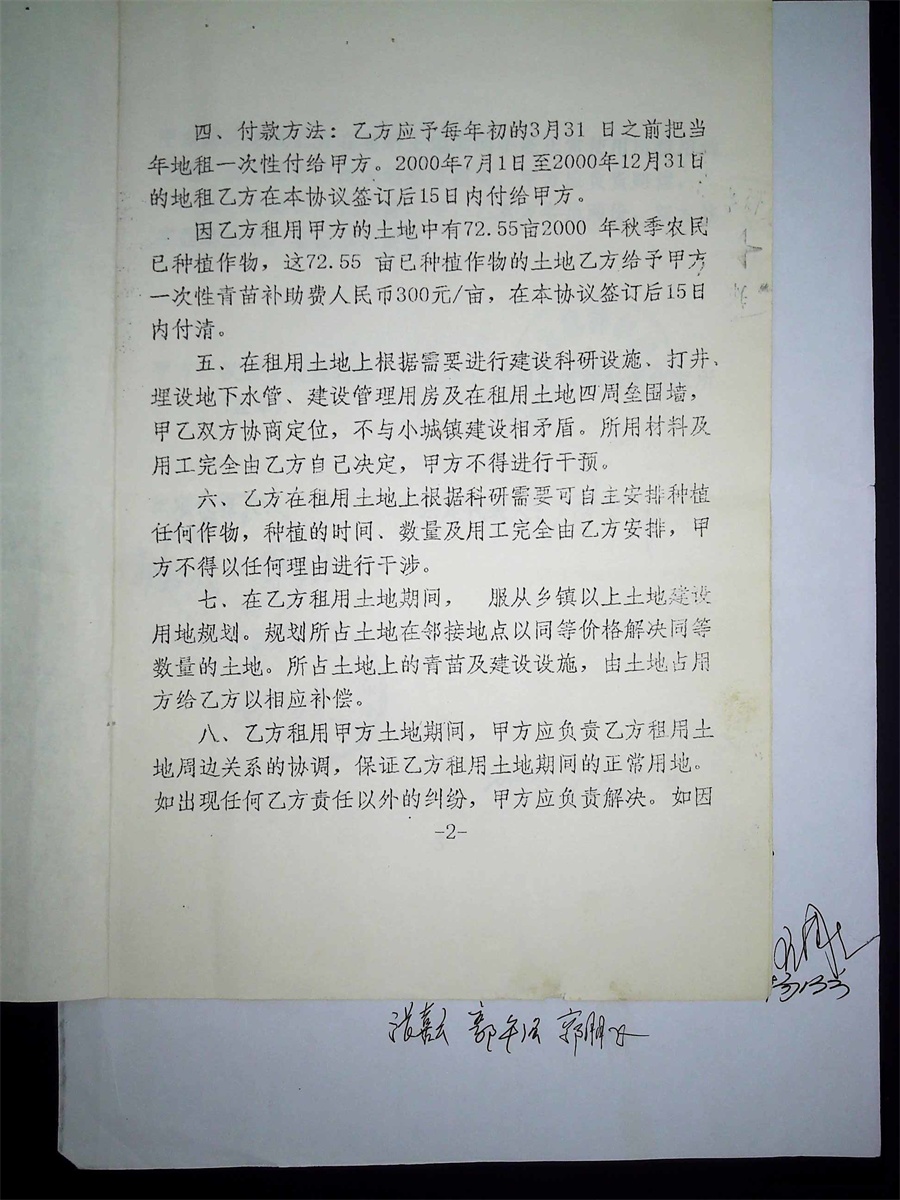 四、付款方法：乙方应予每年初的3月31 日之前把当
年地租一次性付给甲方。2000年7月1日至2000年12月31日
的地租乙方在本协议签订后15日内付给甲方。
因乙方租用甲方的土地中有72.55亩2000 年秋季农民
已种植作物，这72.55 亩已种植作物的土地乙方给予甲方
一次性青苗补助费人民币300元/亩，在本协议签订后15日
内付清。
五、在租用土地上根据需要进行建设科研设施、打井、
埋设地下水管、建设管理用房及在租用土地四周垒围墙，
甲乙双方协商定位，不与小城镇建设相矛盾。所用材料及
用工完全由乙方自己决定，甲方不得进行干预。
六、乙方在租用土地上根据科研需要可自主安排种植
任何作物，种植的时间、数量及用工完全由乙方安排，甲
方不得以任何理由进行干涉。
七、在乙方租用土地期间， 服从乡镇以上土地建设
用地规划。规划所占土地在邻接地点以同等价格解决同等
数量的土地。所占土地上的青苗及建设设施，由土地占用
方给乙方以相应补偿。
八、乙方租用甲方土地期间，甲方应负责乙方租用土
地周边关系的协调，保证乙方租用土地期间的正常用地。
如出现任何乙方责任以外的纠纷，甲方应负责解决。如因
-2-